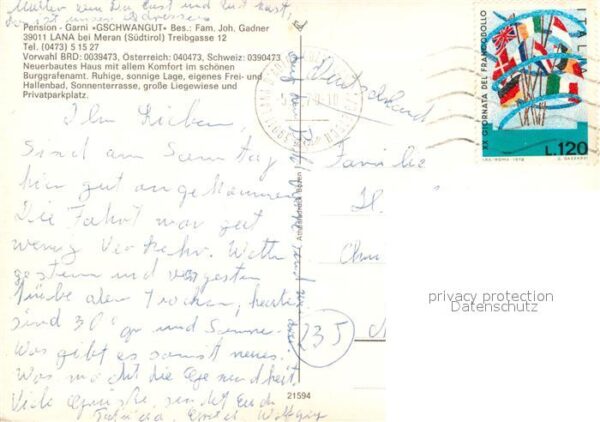 Mutter wenn Du Lust und Zeit hast,
Pension - Garni «GSCHWANGUT» Bes.: Fam. Joh. Gadner
39011 LANA bei Meran (Südtirol) Treibgasse 12
Tel. (0473) 5 15 27
Vorwahl BRD: 0039473, Österreich: 040473, Schweiz: 0390473
Neuerbautes Haus mit allem Komfort im schönen
Burggrafenamt. Ruhige, sonnige Lage, eigenes Frei- und
Hallenbad, Sonnenterrasse, große Liegewiese und
Privatparkplatz.
Ihr Lieben,
Sind am Samstag
hier gut angekommen
Die Fahrt war gut
wenig Verkehr. Wetter
gestern und vorgestern
trübe aber trocken, heute
sind 30° gr und Sonne.
Was gibt es sonst neues.
Was macht die Gesundheit.
Viele Grüße sendet Euch
Wolfgang
Athesiadruck Bozen
21594
Deutschland
Familie
235
XX GIORNATA DEL FRANCOBOLLO
ITALIA
L.120
privacy protection
Datenschutz